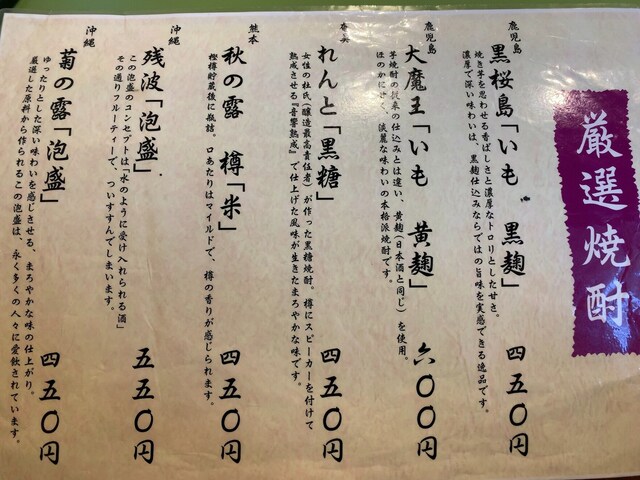 厳選焼酎
鹿児島
黒桜島「いも 黒麹」 四五〇円
焼き芋を思わせる香ばしさと濃厚なトロリとした甘さ。
濃厚で深い味わいは、黒麹仕込みならではの旨味を実感できる逸品です。
鹿児島
大魔王「いも 黄麹」 六〇〇円
芋焼酎の従来の仕込みとは違い、黄麹(日本酒と同じ)を使用。
ほのかに甘く、淡麗な味わいの本格派焼酎です。
奄美
れんと「黒糖」 四五〇円
女性の杜氏(醸造最高責任者)が作った黒糖焼酎。樽にスピーカーを付けて
熟成させる『音響熟成』で仕上げた風味が生きたまろやかな味です。
熊本
秋の露 樽「米」 四五〇円
樫樽貯蔵後に瓶詰。口あたりはマイルドで、樽の香りが感じられます。
沖縄
残波「泡盛」 五五〇円
この泡盛のコンセプトは「水のように受け入れられる酒」
その通りフルーティーで、ついすすんでしまいます。
沖縄
菊の露「泡盛」 四五〇円
ゆったりとした深い味わいを感じさせる、まろやかな味の仕上がり。
厳選した原料から作られるこの泡盛は、永く多くの人々に愛飲されています。